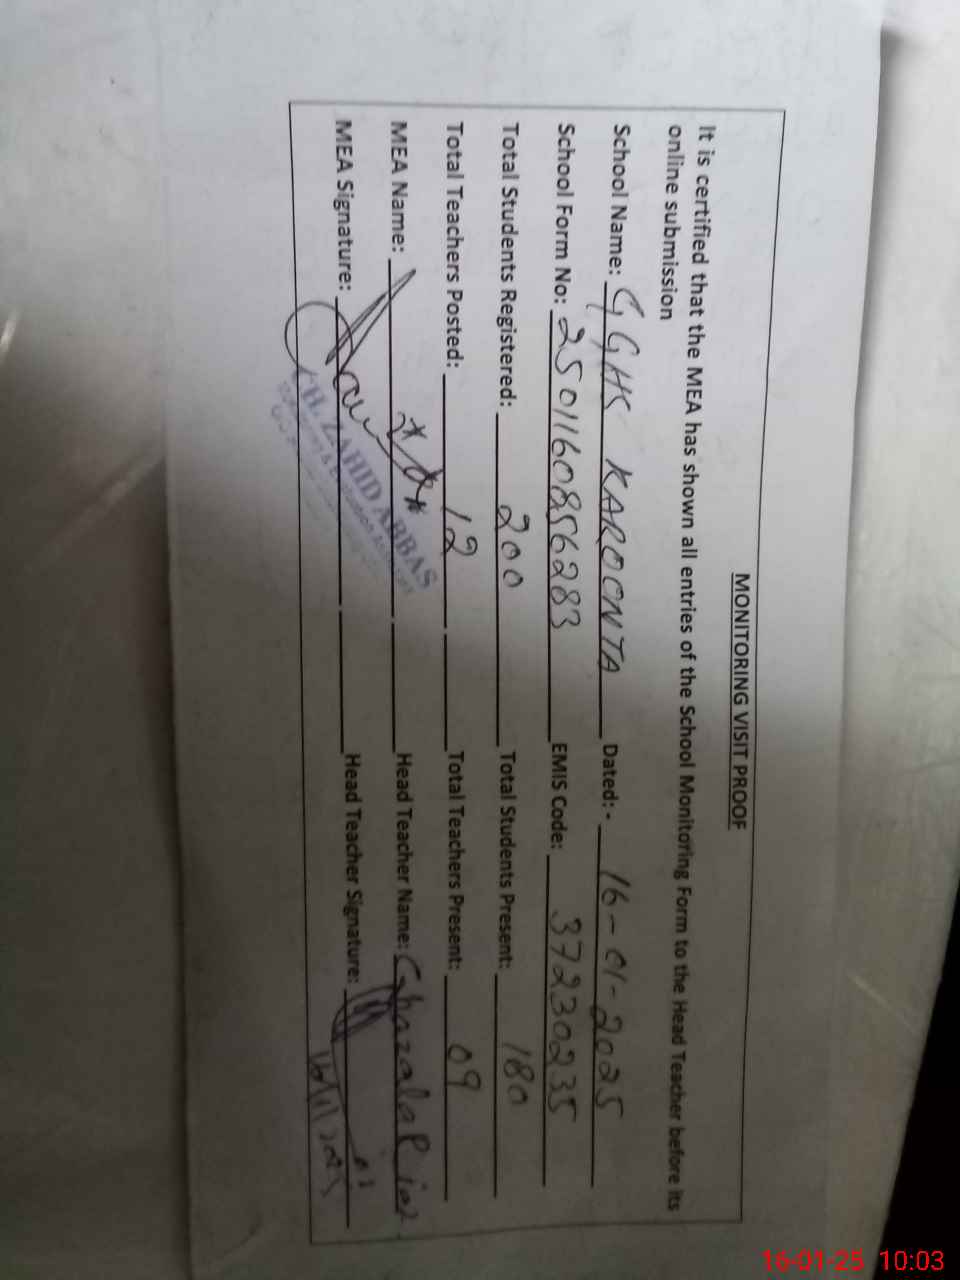 MONITORING VISIT PROOF
It is certified that the MEA has shown all entries of the School Monitoring Form to the Head Teacher before its
online submission
School Name: GGHS KAROONTA Dated:- 16-01-2025
School Form No: 2501160856283 EMIS Code: 37230235
Total Students Registered: 200 Total Students Present: 180
Total Teachers Posted: 12 Total Teachers Present: 09
MEA Name: Head Teacher Name: Ghazala Riaz
MEA Signature: Head Teacher Signature:
CH. ZAHID ABBAS
16-01-25 10:03